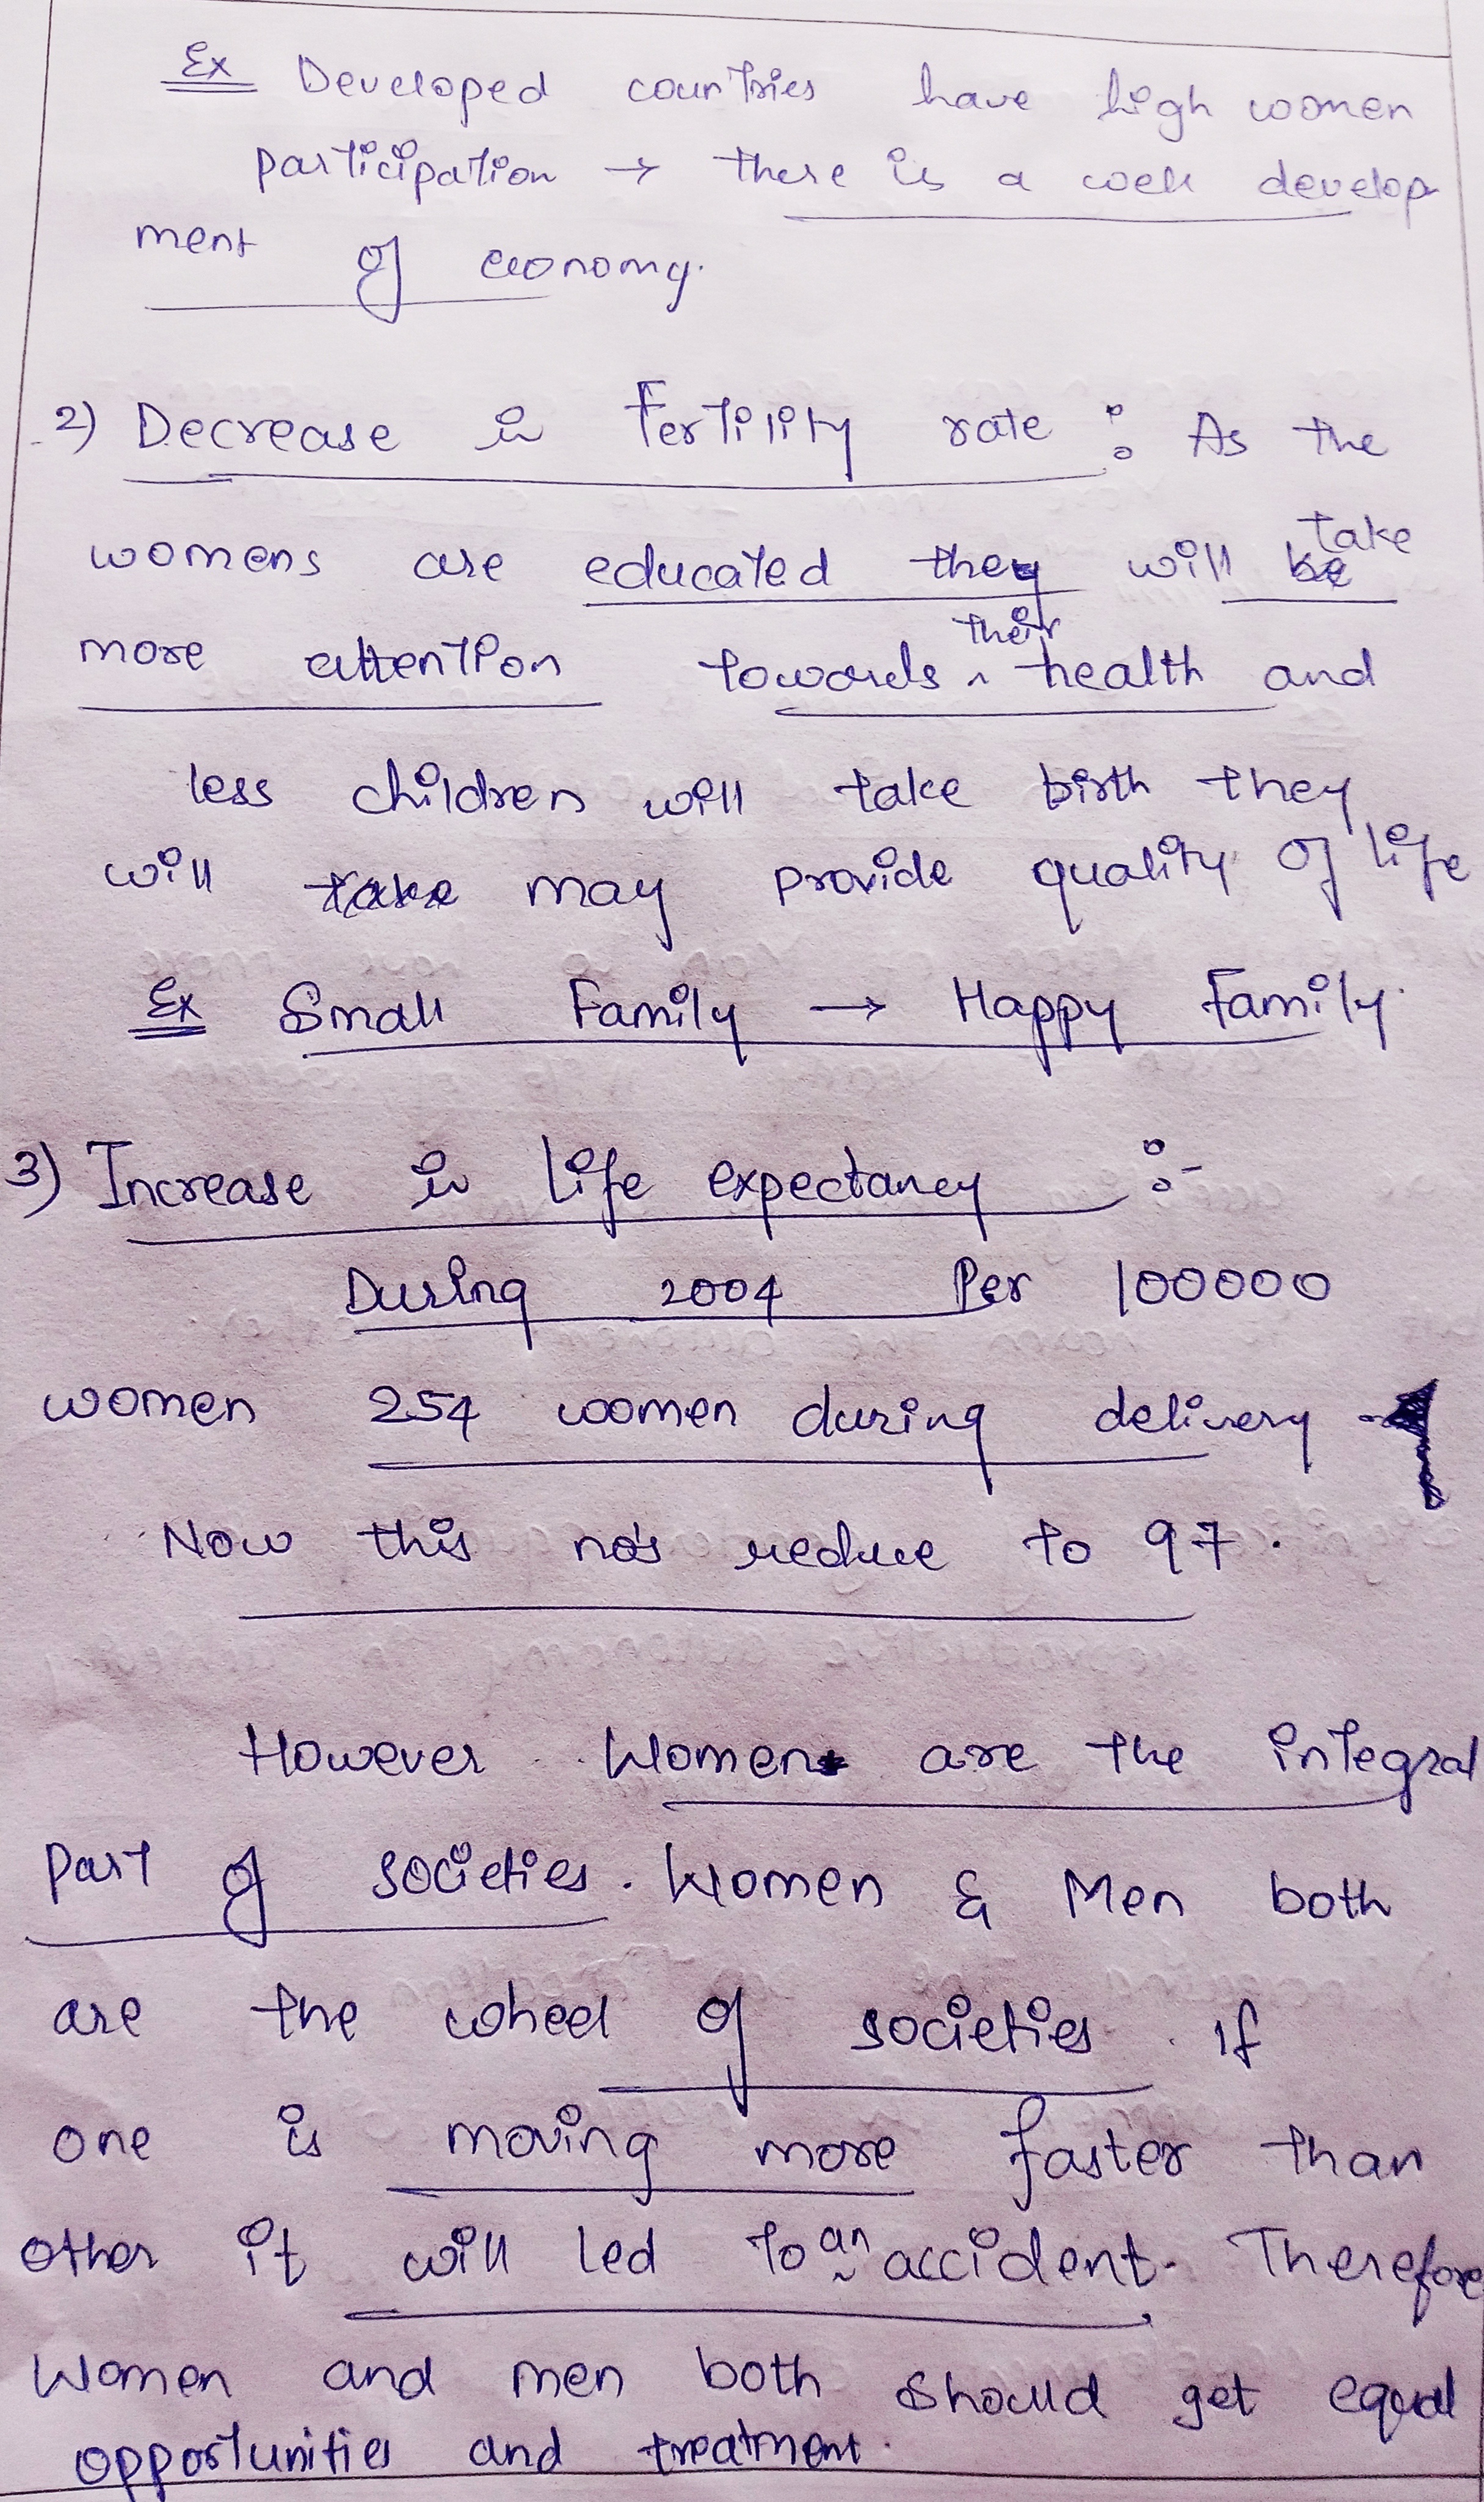 Ex Developed countries have high women
participation → there is a well develop
ment of economy.
2) Decrease in Fertility rate : As the
womens are educated they will be take
more attention towards ^ their health and
less children will take birth they
will take may provide quality of life
Ex Small Family → Happy Family.
3) Increase in life expectancy :-
During 2004 Per 100000
women 254 women during delivery →
Now this no's reduce to 97.
However Women are the integral
part of societies. Women & Men both
are the wheel of societies. if
one is moving more faster than
other it will led to an accident. Therefore
Women and men both should get equal
opportunities and treatment.